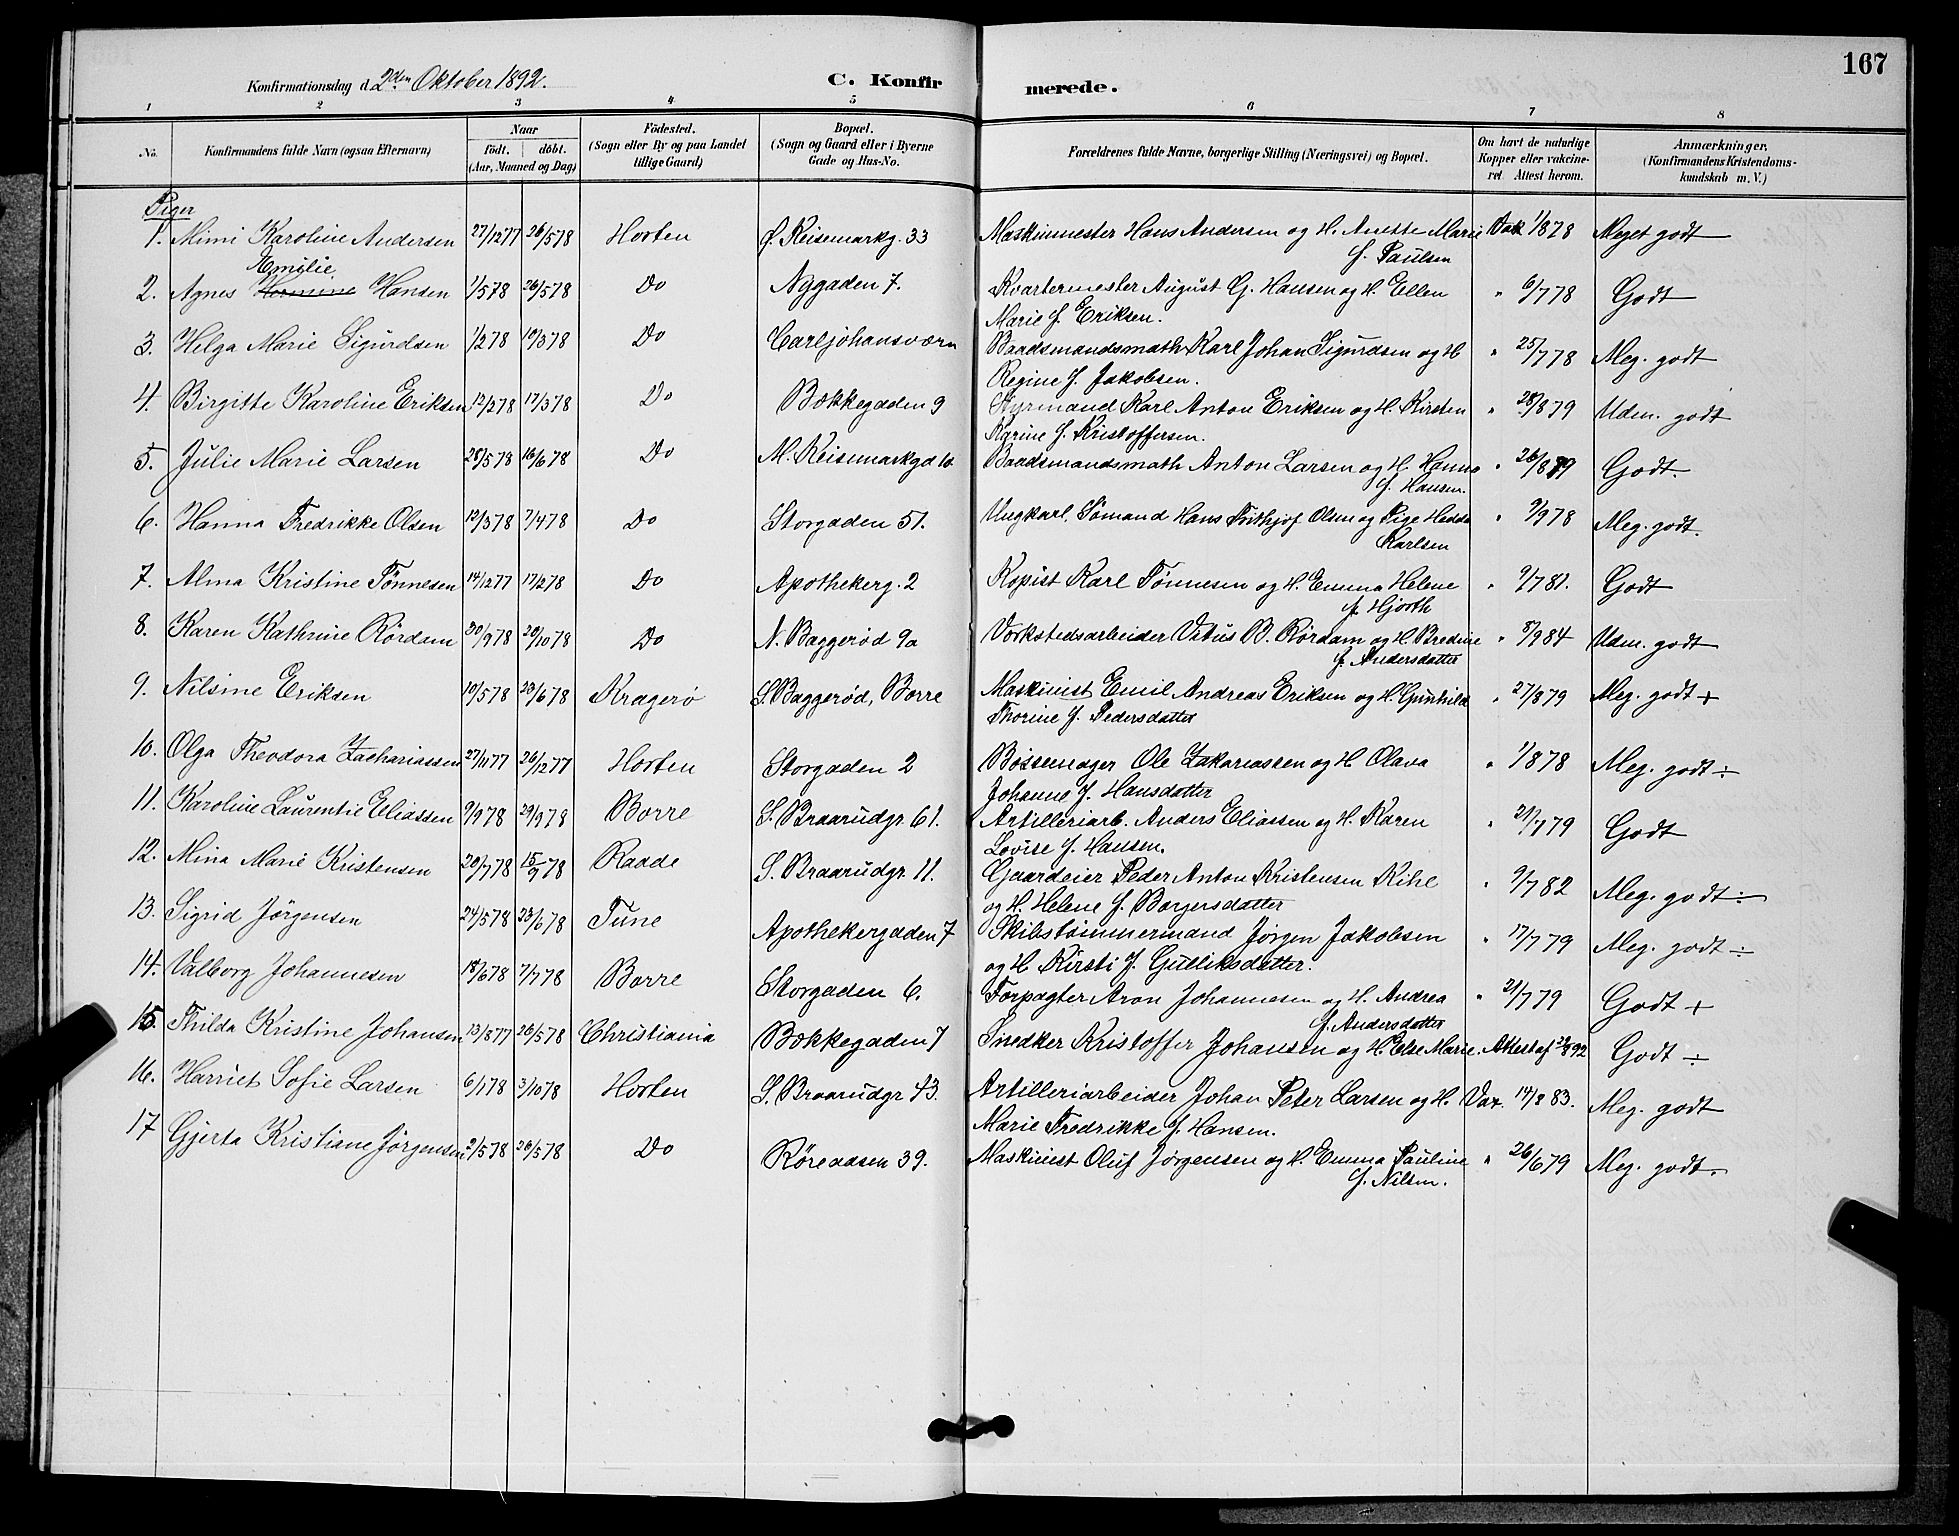 167
Konfirmationsdag d. 2den Oktober 1892. C. Konfirmerede.
1 2 3 4 5 6 7 8
No. Konfirmandens fulde Navn (ogsaa Efternavn) Naar født. døbt. (Aar, Maaned og Dag) Fødested. (Sogn eller By og paa Landet tillige Gaard) Bopæl. (Sogn og Gaard eller i Byerne Gade og Hus-No. Forældrenes fulde Navne, borgerlige Stilling (Næringsvei) og Bopæl. Om havt de naturlige Kopper eller vakcineret Attest herom. Anmærkninger. (Konfirmandens Kristendomskundskab m. V.)
Piger
1. Mimi Karoline Andersen 27/12 77 26/5 78 Horten Ø. Keisemarkg. 33 Maskinmester Hans Andersen og H. Anette Marie Vak 1/8 78 Meget godt
f. Paulsen
Emilie
2. Agnes Hermine Hansen 1/5 78 26/5 78 Do Nygaden 7. Kvartermester August G. Hansen og H. Ellen " 6/7 78 Godt
Marie f. Eriksen.
3. Helga Marie Sigurdsen 1/2 78 10/3 78 Do Carljohansværn Baadsmandsmath Karl Johan Sigurdsen og H " 25/7 78 Meg. godt
Regine f. Jakobsen.
4. Birgitte Karoline Eriksen 12/2 78 17/3 78 Do Bækkegaden 9 Styrmand Karl Anton Eriksen og H. Kirsten " 28/8 79 Udm. godt
Karine f. Kristoffersen.
5. Julie Marie Larsen 28/5 78 16/6 78 Do M. Keisemarkgd 10. Baadsmandsmath Anton Larsen og H. Hanna " 26/8 79 Godt.
f. Hansen.
6. Hanna Fredrikke Olsen 12/3 78 7/4 78 Do Storgaden 51. Ungkarl, Sømand Hans Frithjof Olsen og Pige Hedda " 9/9 78 Meg. godt.
Karlsen
7. Alma Kristine Tønnesen 14/12 77 17/2 78 Do Apothekerg. 2 Kopist Karl Tønnesen og H. Emma Helene " 9/7 81. Godt
f. Hjorth
8. Karen Kathrine Rørdam 30/9 78 20/10 78 Do N. Baggerød 9a Verkstedsarbeider Vitus B. Rørdam og H. Bredine " 8/9 84 Udm. godt
f. Andersdatter
9. Nilsine Eriksen 10/5 78 23/6 78 Kragerø S. Baggerød, Borre Maskinist Emil Andreas Eriksen og H. Gunhild " 27/8 79 Meg. godt +
Thorine f. Pedersdatter
10. Olga Theodora Zachariassen 27/11 77 26/12 77 Horten Storgaden 2 Bøssemager Ole Zakariassen og H Olava " 1/8 78 Meg. godt ÷
Johanne f. Hansdatter
11. Karoline Laurentie Eliassen 9/9 78 29/9 78 Borre S. Braarudgr. 61. Artilleriarb. Anders Eliassen og H. Karen " 21/7 79 Godt
Lovise f. Hansen.
12. Mina Marie Kristensen 20/7 78 15/9 78 Raade S. Braarudgr. 11. Gaardeier Peder Anton Kristensen Kihl " 9/7 82 Meg. godt ÷
og H. Helene f. Borgersdatter
13. Sigrid Jørgensen 24/5 78 23/6 78 Tune Apothekergaden 7 Skibstømmermand Jørgen Jakobsen " 17/7 79 Meg. godt ÷
og H Kirsti f. Gulliksdatter.
14. Valborg Johannesen 18/6 78 7/7 78 Borre Storgaden 6. Forpagter Aron Johannesen og H. Andrea " 21/7 79 Godt +
f. Andersdatter
15. Thilda Kristine Johansen 13/8 77 26/5 78 Christiania Bækkegaden 7 Snedker Kristoffer Johansen og H. Else Marie. Attest af /8 92 Godt ÷
16. Harriet Sofie Larsen 6/1 78 3/10 78 Horten S. Braarudgr 43. Artilleriarbeider Johan Peter Larsen og H. Vax. 14/8 83. Meg. godt
Marie Fredrikke f. Hansen.
17 Gjerta Kristiane Jørgensen 2/5 78 26/5 78 Do Røreaasen 39. Maskinist Oluf Jørgensen og H. Emma Pauline " 26/6 79 Meg. godt.
f. Nilsen.